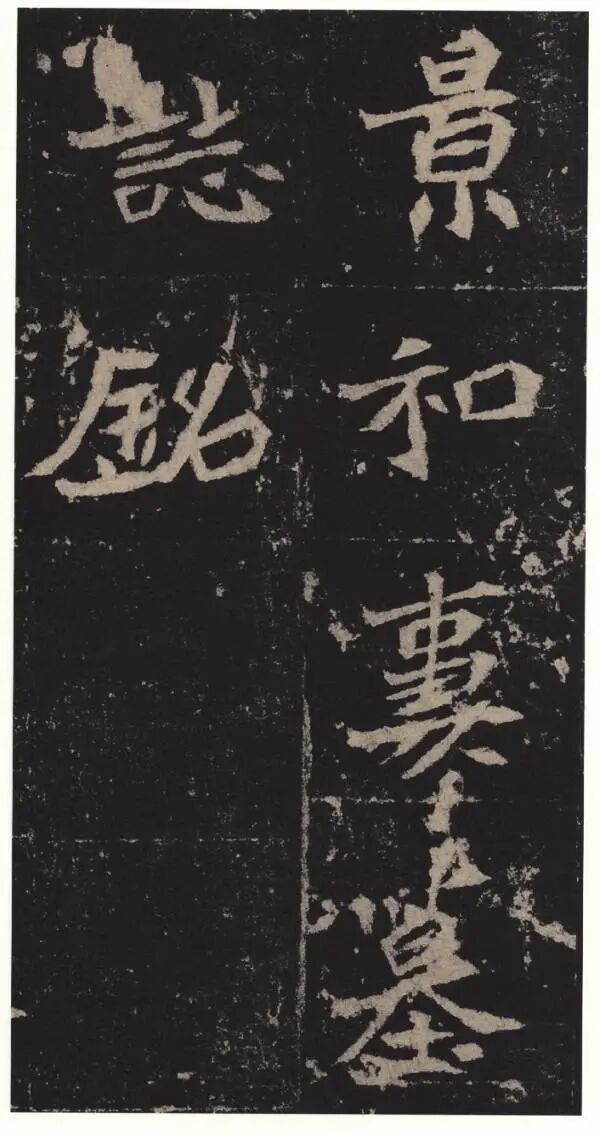 景和妻墓
誌銘